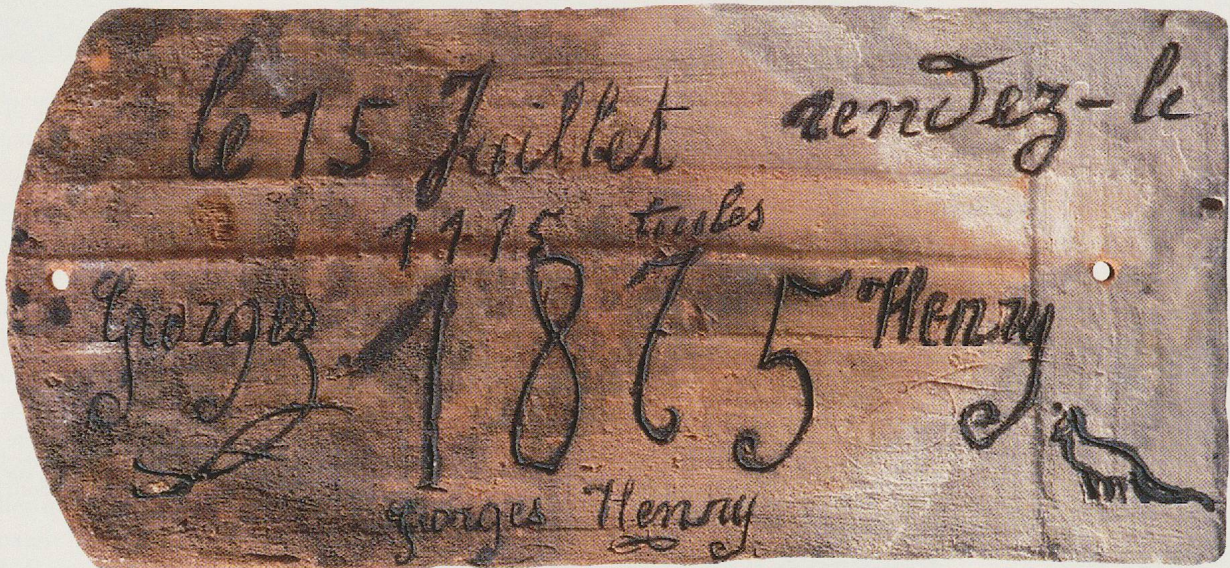 le 15 Juillet rendez-le
1115
Georges 1875 Henry
Georges Henry